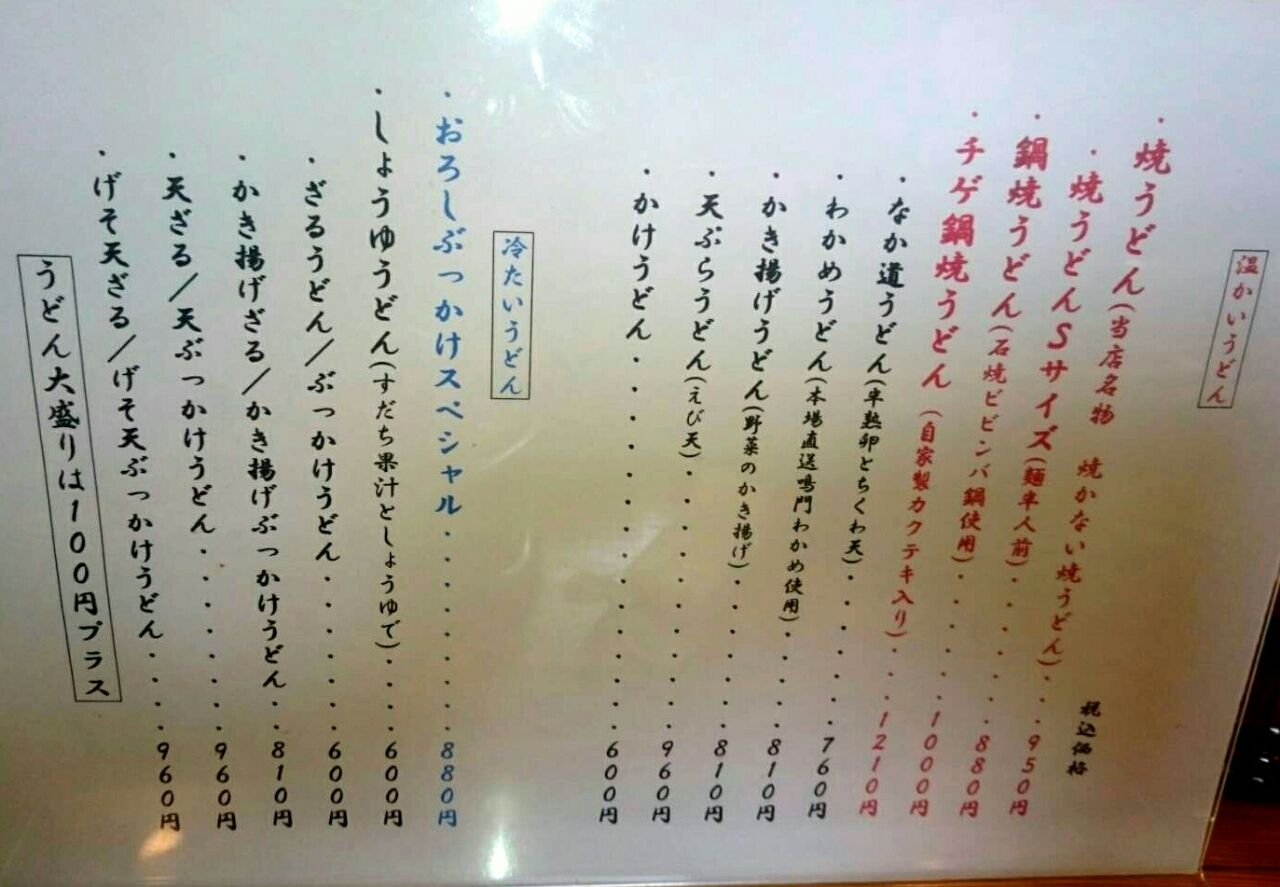 温かいうどん
税込価格
・焼うどん(当店名物 焼かない焼うどん)・・950円
・焼うどんSサイズ(麺半人前)・・・・・880円
・鍋焼うどん(石焼ビビンバ鍋使用)・・・・・1000円
・チゲ鍋焼うどん(自家製カクテキ入り)・・・1210円
・なか遣うどん(半熟卵とちくわ天)・・・・・・760円
・わかめうどん(本場直送鳴門わかめ使用)・・・・810円
・かき揚げうどん(野菜のかき揚げ)・・・・・・810円
・天ぷらうどん(えび天)・・・・・・・・・・960円
・かけうどん・・・・・・・・・・・・・・600円
冷たいうどん
・おろしぶっかけスペシャル・・・・・・・・880円
・しょうゆうどん(すだち果汁としょうゆで)・・・・600円
・ざるうどん/ぶっかけうどん・・・・・・・600円
・かき揚げざる/かき揚げぶっかけうどん・・810円
・天ざる/天ぶっかけうどん・・・・・・・・960円
・げそ天ざる/げそ天ぶっかけうどん・・・・960円
うどん大盛りは100円プラス